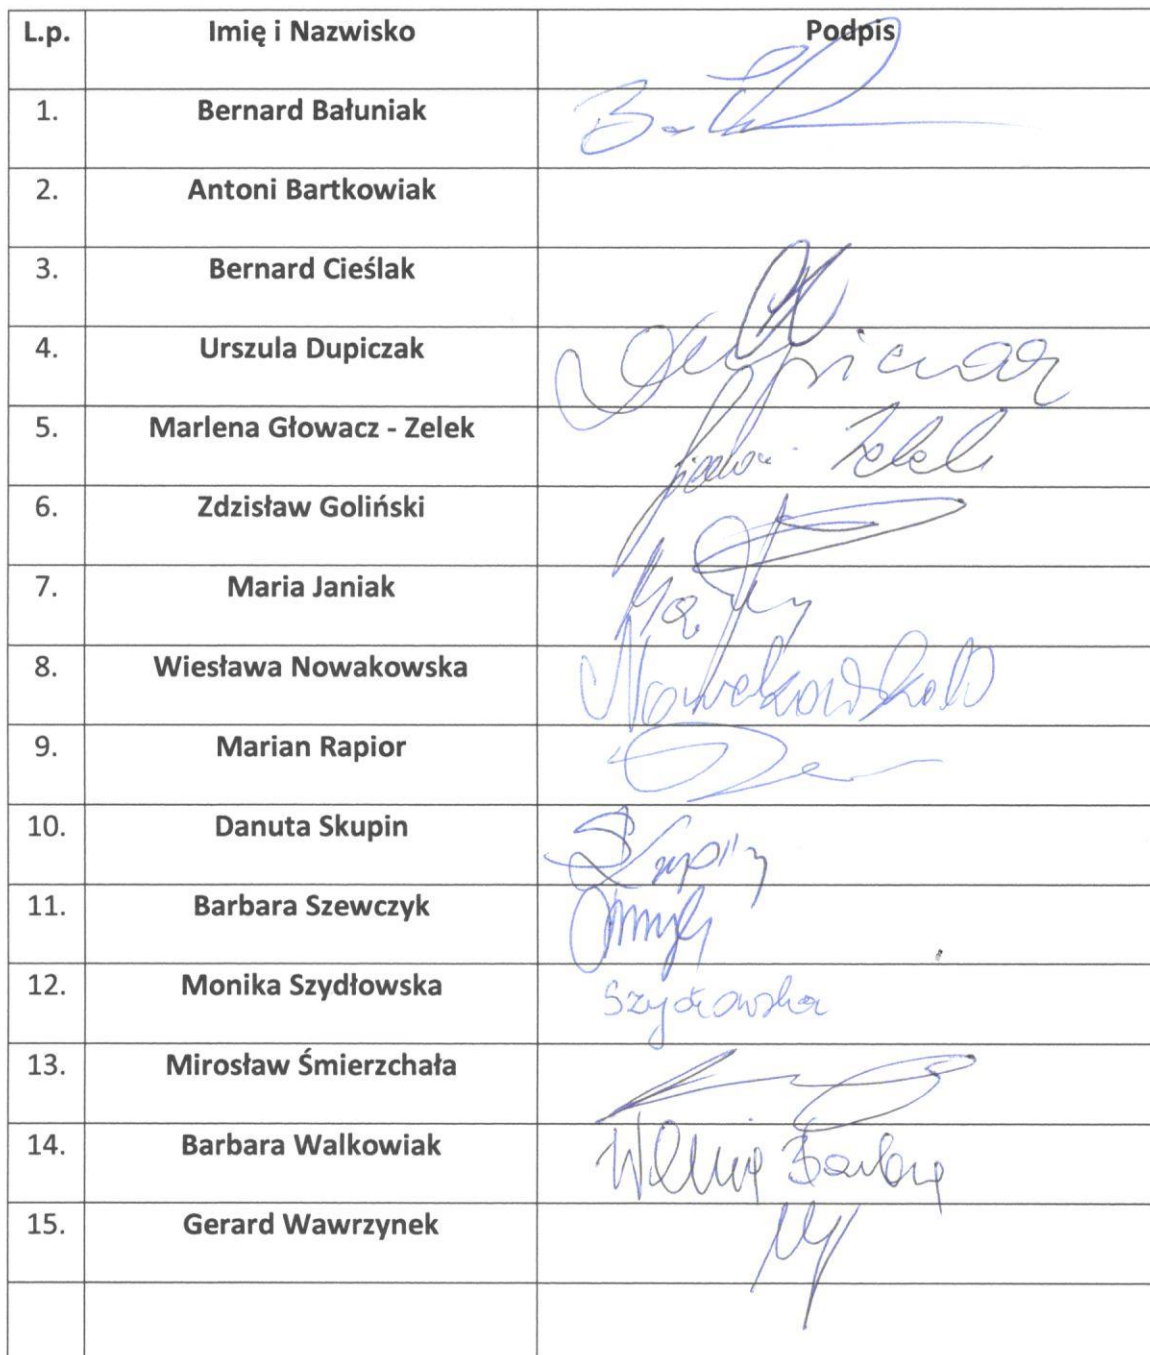 L.p. Imię i Nazwisko Podpis
1. Bernard Bałuniak
2. Antoni Bartkowiak
3. Bernard Cieślak
4. Urszula Dupiczak
5. Marlena Głowacz - Zelek Zelek
6. Zdzisław Goliński
7. Maria Janiak
8. Wiesława Nowakowska Nowakowska
9. Marian Rapior
10. Danuta Skupin Skupin
11. Barbara Szewczyk
12. Monika Szydłowska Szydłowska
13. Mirosław Śmierzchała
14. Barbara Walkowiak
15. Gerard Wawrzynek